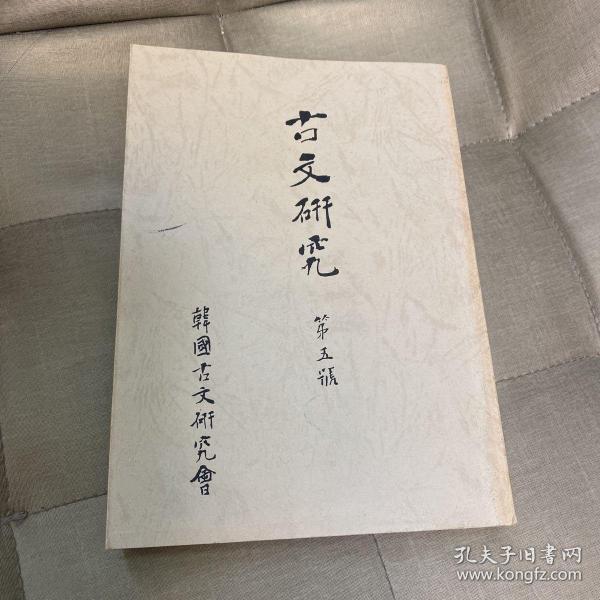 古文研究
第五號
韓國古文研究會
孔夫子旧书网
www.kongfz.com